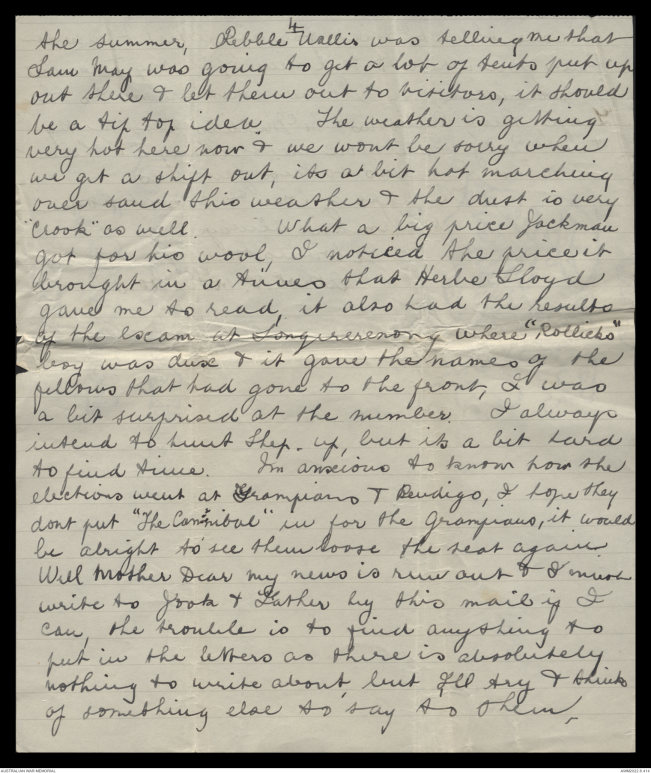 4
the summer, Pebble Wallis was telling me that
Sam May was going to get a lot of tents put up
out there & let them out to visitors, it should
be a tip top idea. The weather is getting
very hot here now & we wont be sorry when
we get a shift out, its a bit hot marching
over sand this weather & the dust is very
"crook" as well. What a big price Jackman
got for his wool, I noticed the price it
brought in a Times that Herbe Lloyd
gave me to read, it also had the results
of the Exam at where "Rollicks"
boy was dux & it gave the names of the
fellows that had gone to the front, I was
a bit surprised at the number. I always
intend to hunt Shep. up, but its a bit hard
to find time. Im anxious to know how the
elections went at Grampians & Bendigo, I hope they
dont put "The Cannibal" in for the Grampians, it would
be alright to see them loose the seat again
Well Mother Dear my news is run out & I must
write to Jock & Father by this mail if I
can, the trouble is to find anything to
put in the letters as there is absolutely
nothing to write about, but I'll try & think
of something else to say to them,
AUSTRALIAN WAR MEMORIAL